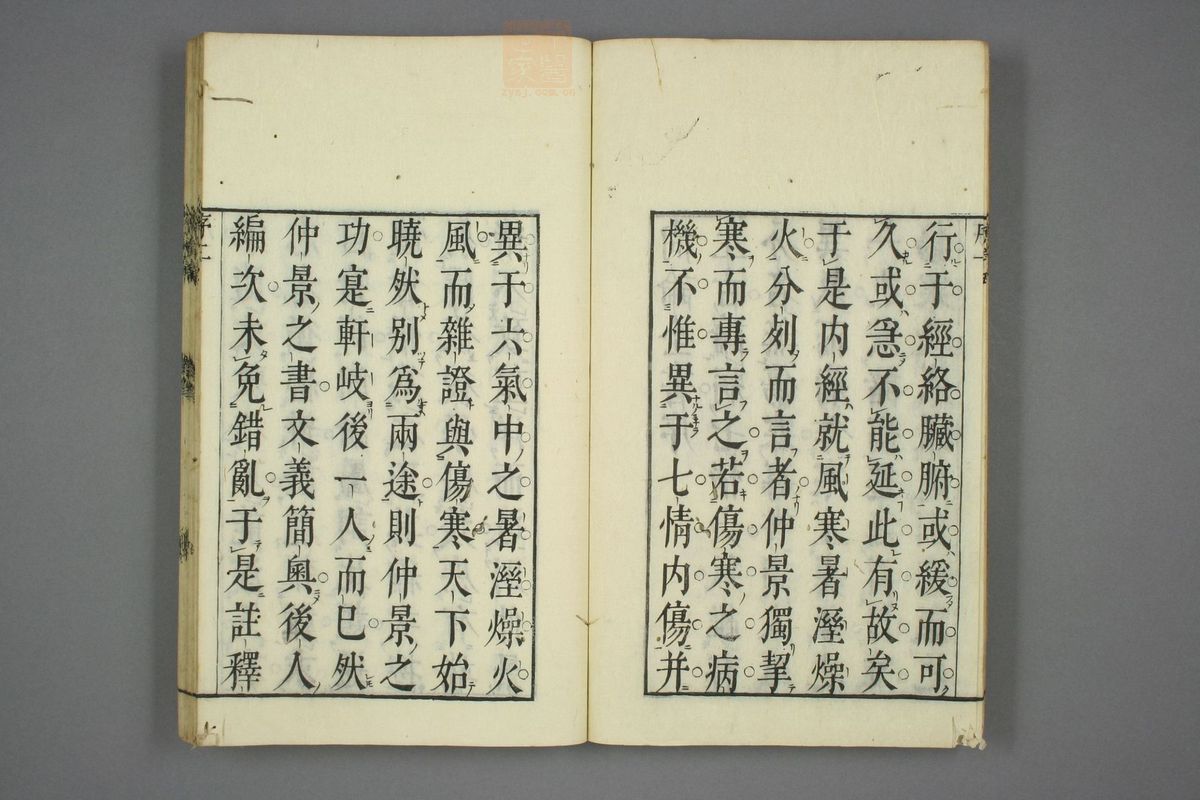 行于經絡臟腑或緩而可
久或急不能延此有故矣
于是内經就風寒暑溼燥
火分列而言者仲景獨挈
寒而專言之若傷寒之病
機不惟異于七情内傷并
異于六氣中之暑溼燥火
風而雜證與傷寒天下始
曉然别為兩途則仲景之
功寔軒岐後一人而已然
仲景之書文義簡奥後人
編次未免錯亂于是註釋
序二
zysj.com.cn